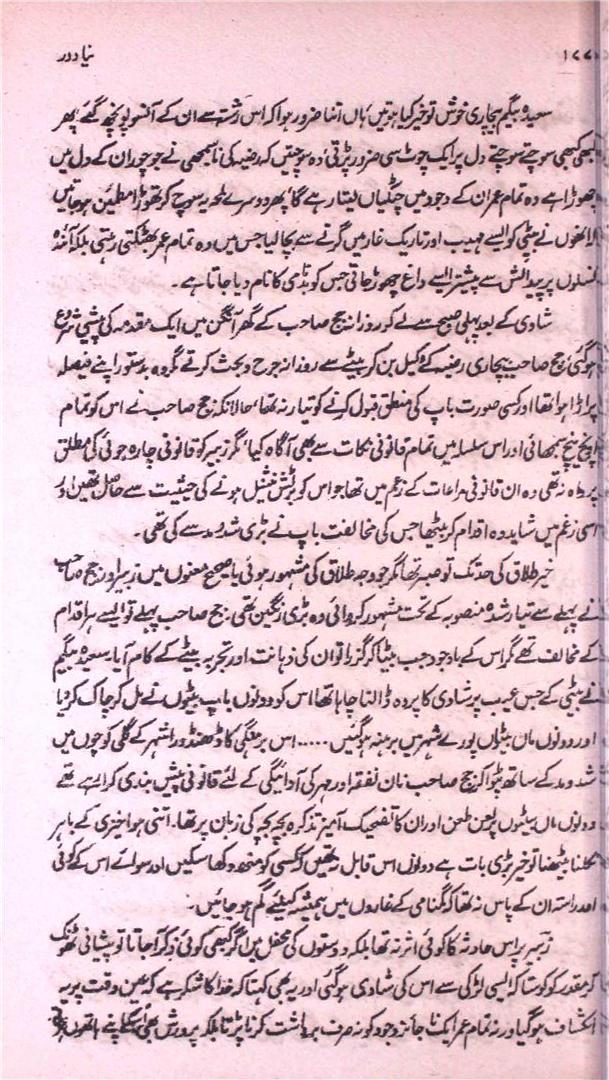 ۱۷۷ نیا دور
سعیدہ بیگم بیچاری خوش تو خیر کیا ہوتیں، ہاں اتنا ضرور ہوا کہ اس رشتہ سے ان کے آنسو پونچھ گئے، پھر
کبھی کبھی سوچتے سوچتے دل پر ایک چوٹ سی ضرور پڑتی، وہ سوچتیں کہ رضیہ کی ناسمجھی نے جو چور ان کے دل میں
چھوڑا ہے وہ تمام عمر ان کے وجود میں چٹکیاں لیتا رہے گا، پھر دوسرے لمحہ یہ سوچ کر تھوڑا مطمئن ہو جاتیں
انھوں نے بیٹی کو ایسے مہیب اور تاریک غار میں گرنے سے بچا لیا جس میں وہ تمام عمر بھٹکتی رہتی بلکہ آئندہ
نسلوں پر پیدائش سے پیشتر ایسے داغ چھوڑ جاتی جس کو بدنامی کا نام دیا جاتا ہے۔
شادی کے بعد پہلی صبح سے لے کر روزانہ جج صاحب کے گھر آنگن میں ایک مقدمہ کی پیشی شروع
ہو گئی، جج صاحب بیچاری رضیہ کے وکیل بن کر بیٹے سے روزانہ جرح و بحث کرتے مگر وہ بدستور اپنے فیصلہ
پر اڑا ہوا تھا اور کسی صورت باپ کی منطق قبول کرنے کو تیار نہ تھا، حالانکہ جج صاحب نے اس کو تمام
اونچ نیچ سمجھائی اور اس سلسلہ میں تمام قانونی نکات سے بھی آگاہ کیا، مگر زبیر کو قانونی چارہ جوئی کی مطلق
پرواہ نہ تھی وہ ان قانونی مراعات کے زعم میں تھا جو اس کو برٹش نیشنل ہونے کی حیثیت سے حاصل تھیں اور
اسی زعم میں شاید وہ اقدام کر بیٹھا جس کی مخالفت باپ نے بڑی شد و مد سے کی تھی۔
خیر طلاق کی حد تک تو صبر تھا مگر جو وجہ طلاق کی مشہور ہوئی یا صحیح معنوں میں زبیر اور جج صاحب
نے پہلے سے تیار شدہ منصوبہ کے تحت مشہور کروائی وہ بڑی رنگین تھی۔ جج صاحب پہلے تو ایسے ہر اقدام
کے مخالف تھے مگر اس کے باوجود جب بیٹا کر گزرا تو ان کی ذہانت اور تجربہ بیٹے کے کام آیا۔ سعیدہ بیگم
نے بیٹی کے جس عیب پر شادی کا پردہ ڈالنا چاہا تھا اس کو دونوں باپ بیٹوں نے مل کر چاک کر دیا
اور دونوں ماں بیٹیاں پورے شہر میں برہنہ ہو گئیں ..... اس برہنگی کا ڈھنڈورا شہر کے گلی کوچوں میں
شد و مد کے ساتھ پٹوا کر جج صاحب نان نفقہ اور مہر کی آدائیگی کے لئے قانونی پیش بندی کر رہے تھے
دونوں ماں بیٹیوں پر لعن طعن اور ان کا تضحیک آمیز تذکرہ بچہ بچہ کی زبان پر تھا۔ اتنی ہوا خیزی کے باہر
نکلنا بیٹھنا تو خیر بڑی بات ہے دونوں اس قابل نہ تھیں کہ کسی کو منھ دکھا سکیں اور سوائے اس کے کوئی
اور راستہ ان کے پاس نہ تھا کہ گمنامی کے غاروں میں ہمیشہ کیلئے گم ہو جائیں۔
زبیر پر اس حادثہ کا کوئی اثر نہ تھا بلکہ دوستوں کی محفل میں اگر کبھی کوئی ذکر آ جاتا تو پیشانی ٹھونک
کر مقدر کو کوستا کہ ایسی لڑکی سے اس کی شادی ہو گئی اور یہ بھی کہتا کہ خدا کا شکر ہے کہ عین وقت پر یہ
انکشاف ہو گیا ورنہ تمام عمر ایک ناجائز وجود کو نہ صرف برداشت کرنا پڑتا بلکہ پرورش بھی اپنے ہاتھوں